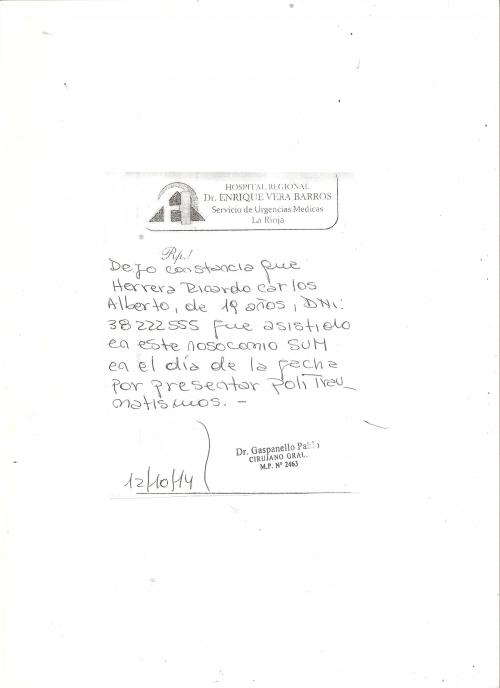 HOSPITAL REGIONAL
Dr. ENRIQUE VERA BARROS
Servicio de Urgencias Medicas
La Rioja
Rp.!
Dejo constancia que
Herrera Ricardo Carlos
Alberto, de 19 años, DNI:
38222555 fue asistido
en este nosocomio SUM
en el día de la fecha
por presentar Poli Trau_
matismos. -
Dr. Gaspanello Pablo
CIRUJANO GRAL.
M.P. Nº 2463
12/10/14